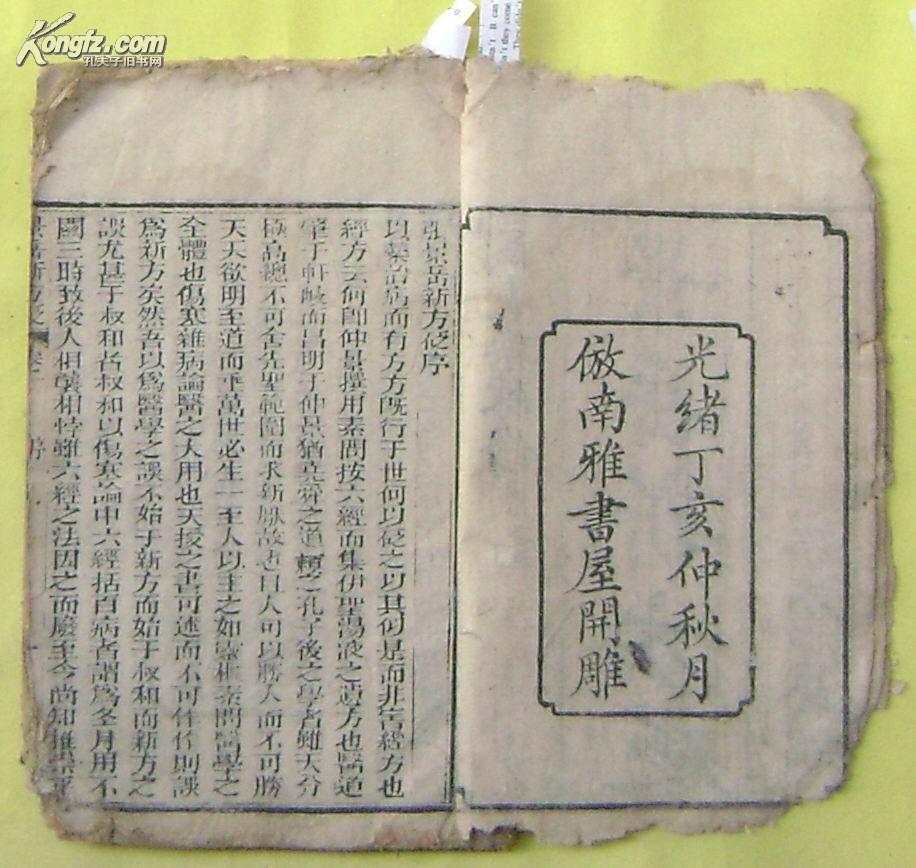 Kongfz.com
孔夫子旧书网
光緒丁亥仲秋月
倣南雅書屋開雕
張景岳新方砭序
以藥治病而有方方既行于世何以砭之以其似是而非害經方也
經方云何卽仲景撰用素問按六經而集伊聖湯液之遺方也醫道
肇于軒岐而昌明于仲景猶堯舜之道賴之孔子後之學者雖天分
極高總不可舍先聖範圍而求新厭故也且人可以勝人而不可勝
天天欲明至道而垂萬世必生一至人以主之如靈樞素問醫學之
全體也傷寒雜病論醫之大用也天授之書可述而不可作作則誤
爲新方矣然吾以爲醫學之誤不始于新方而始于叔和而新方之
誤尤甚于叔和者叔和以傷寒論中六經括百病者謂爲冬月用不
關三時致後人相襲相悖雖六經之法因之而廢至今尚知推崇
景岳新方砭 卷一 序